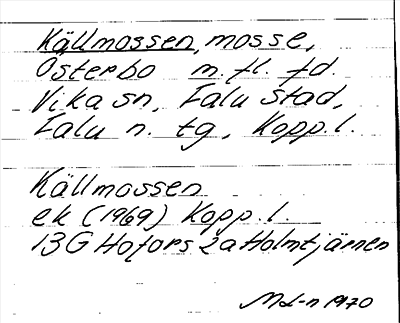 Källmossen, mosse,
Österbo m. fl. fd.
Vika sn, Falu stad,
Falu n. tg, Kopp. l.
Källmossen
ek (1969) Kopp. l.
13G Hofors 2a Holmtjärnen
Md-n 1970